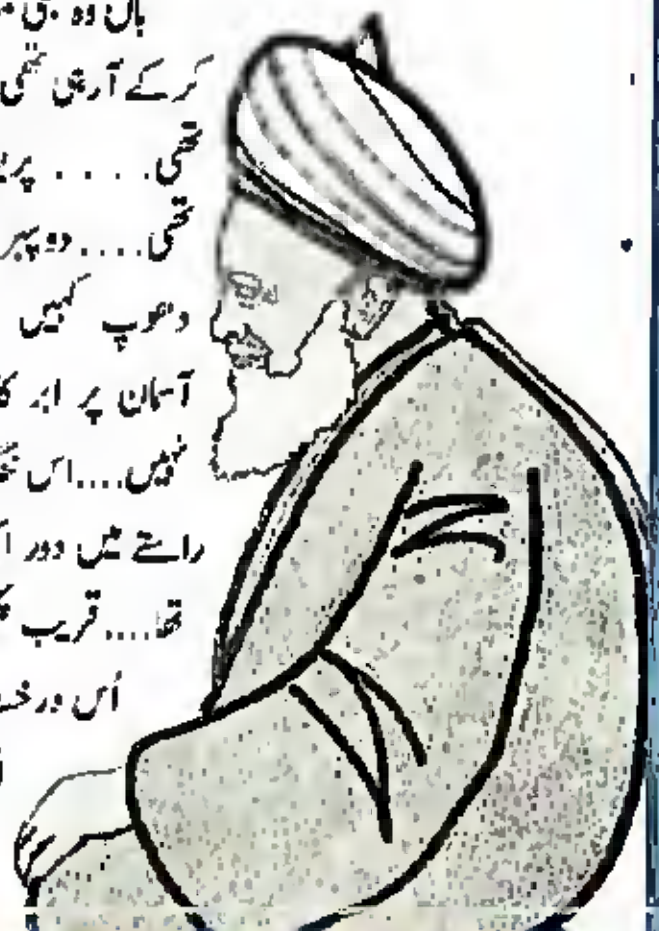 ہاں وہ بھی
کر کے آ رہی تھی
تھی.....
تھی....دوپہر
دھوپ کہیں
آسمان پر ابر کا
نہیں....اس
راستے میں دور
تھا....قریب
اُس درخت